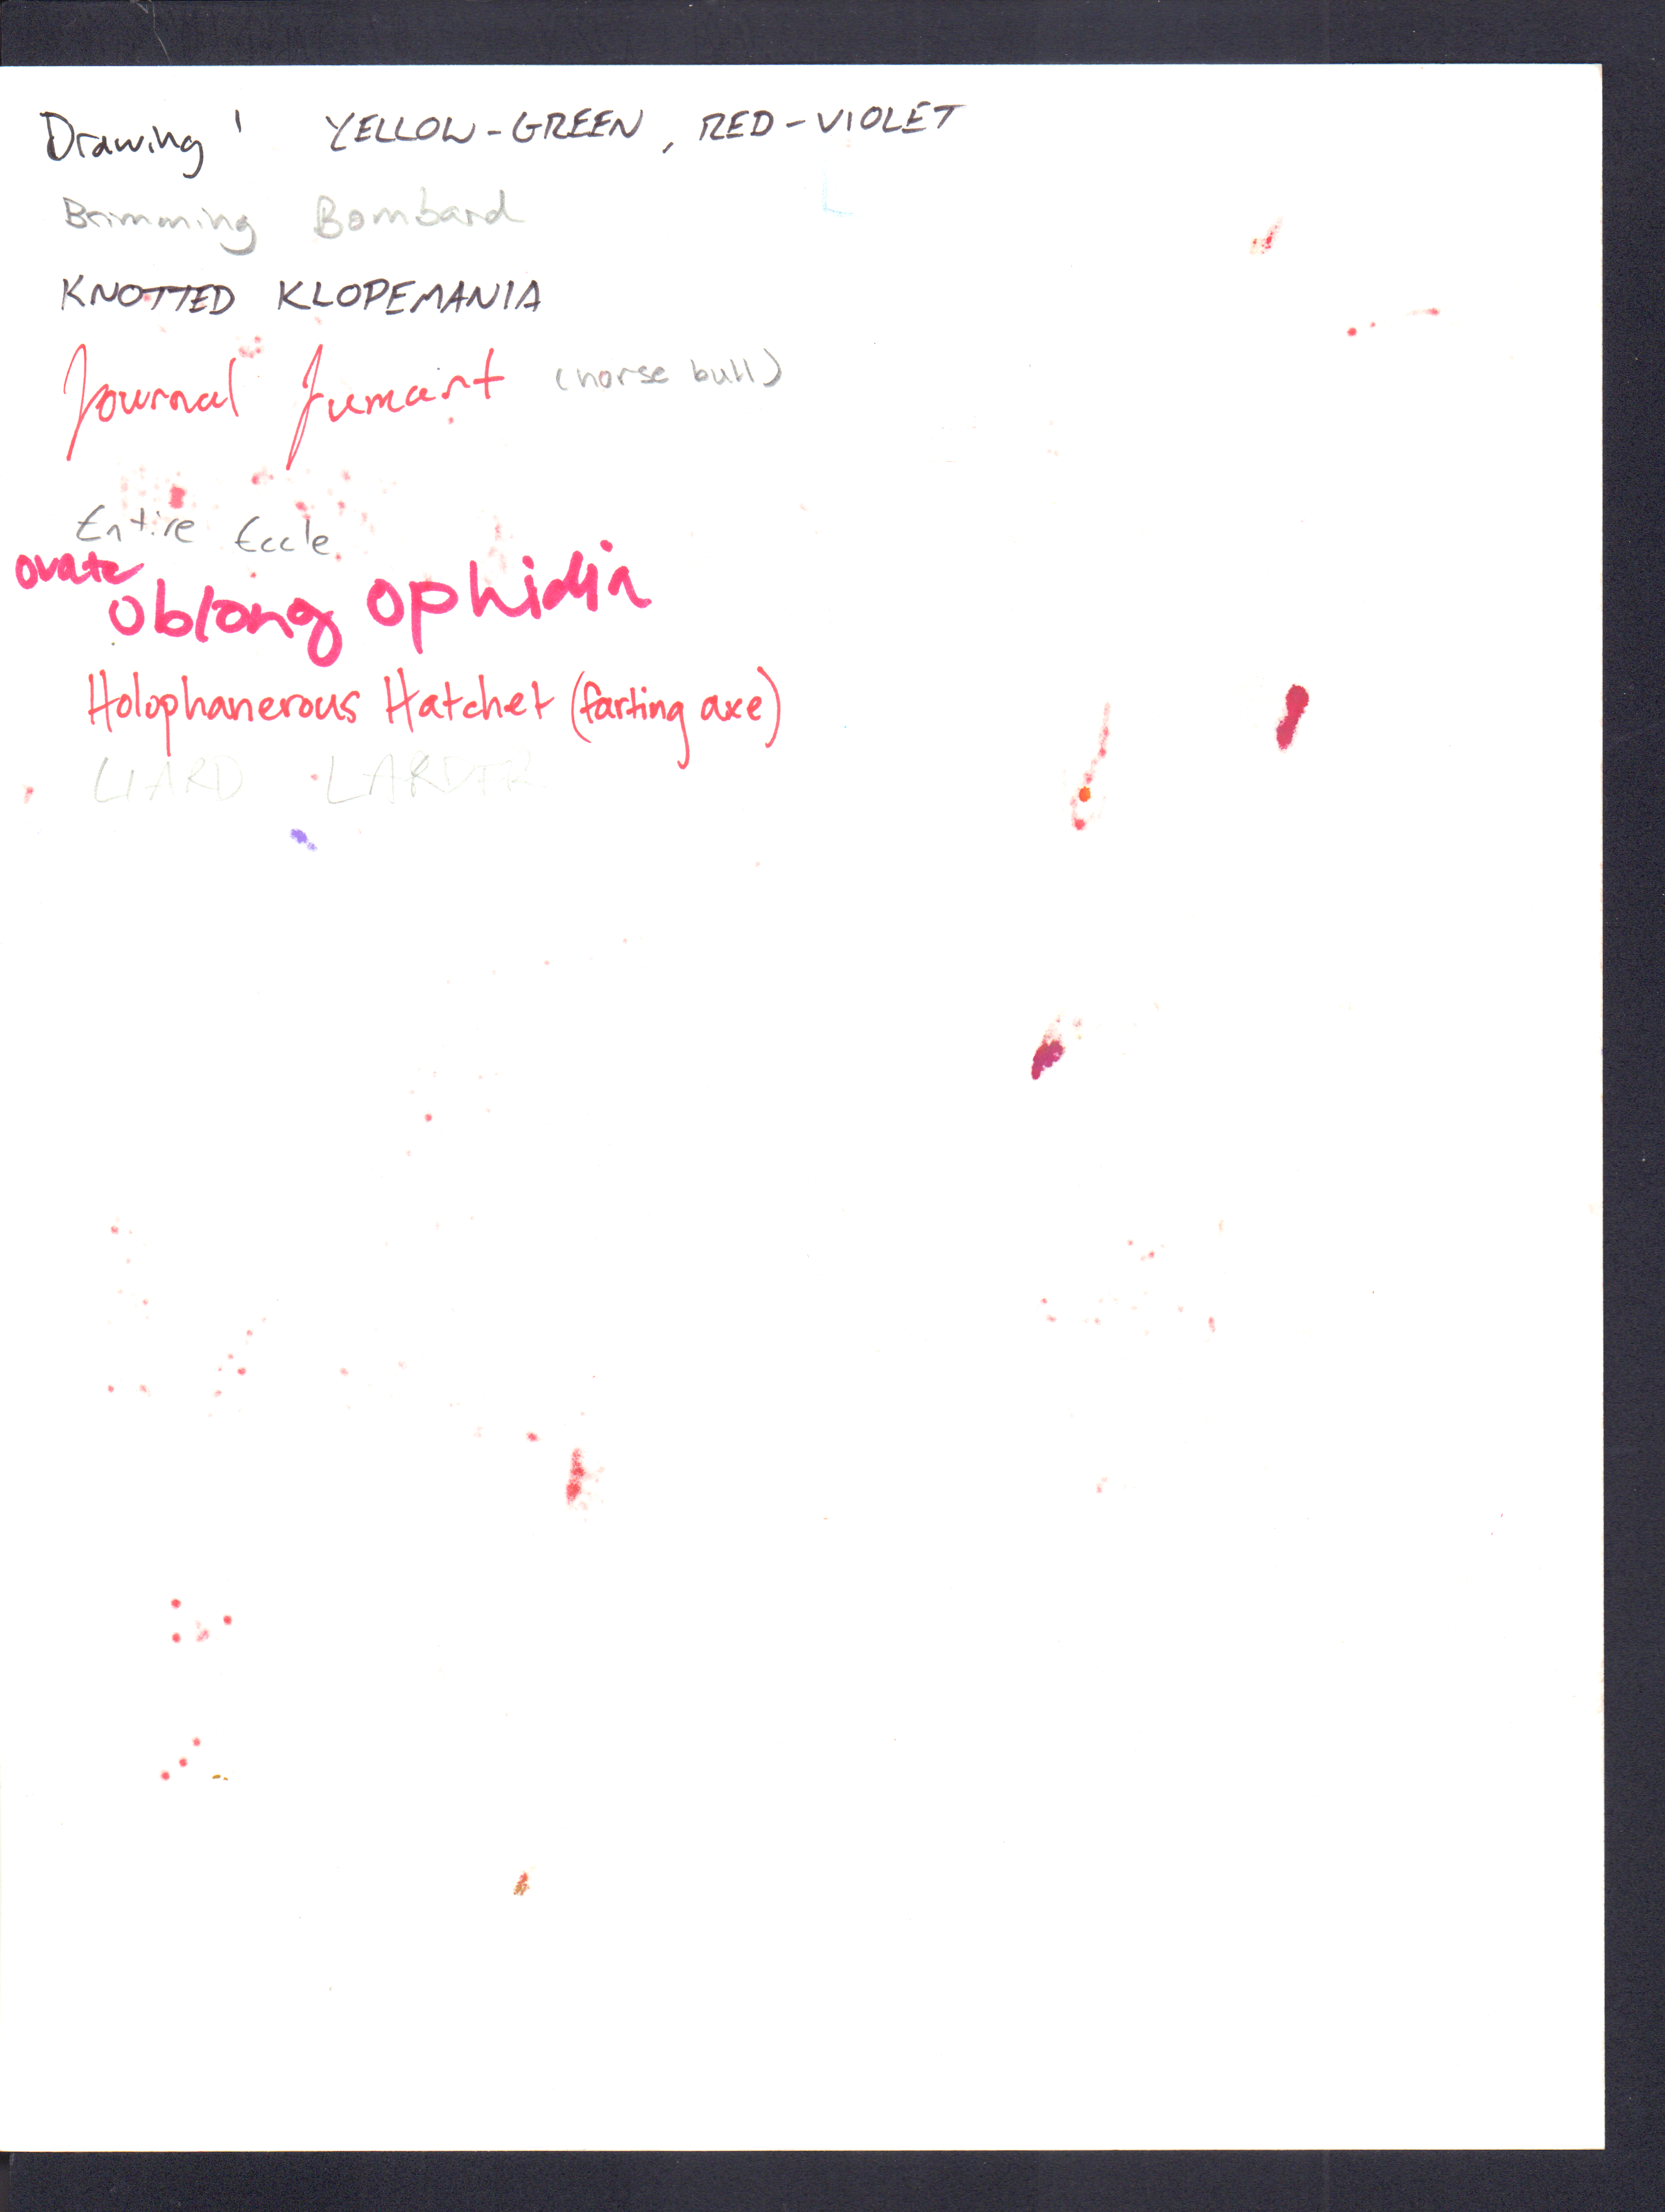 Drawing 1 YELLOW-GREEN, RED-VIOLET
Brimming Bombard
KNOTTED KLOPEMANIA
Journal Jumart (horse bull)
Entire Eccle
ovate
oblong ophidia
Holophanerous Hatchet (farting axe)
LIARD LARDER